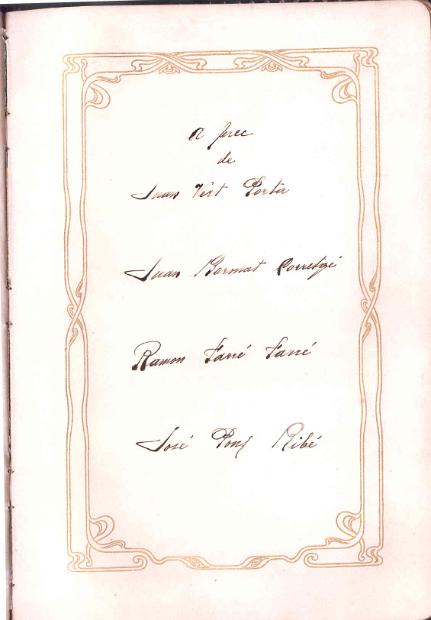 a prec
de
Juan Vist Porta
Juan Bormat Corretgé
Ramon Farré Farré
José Pons Ribé